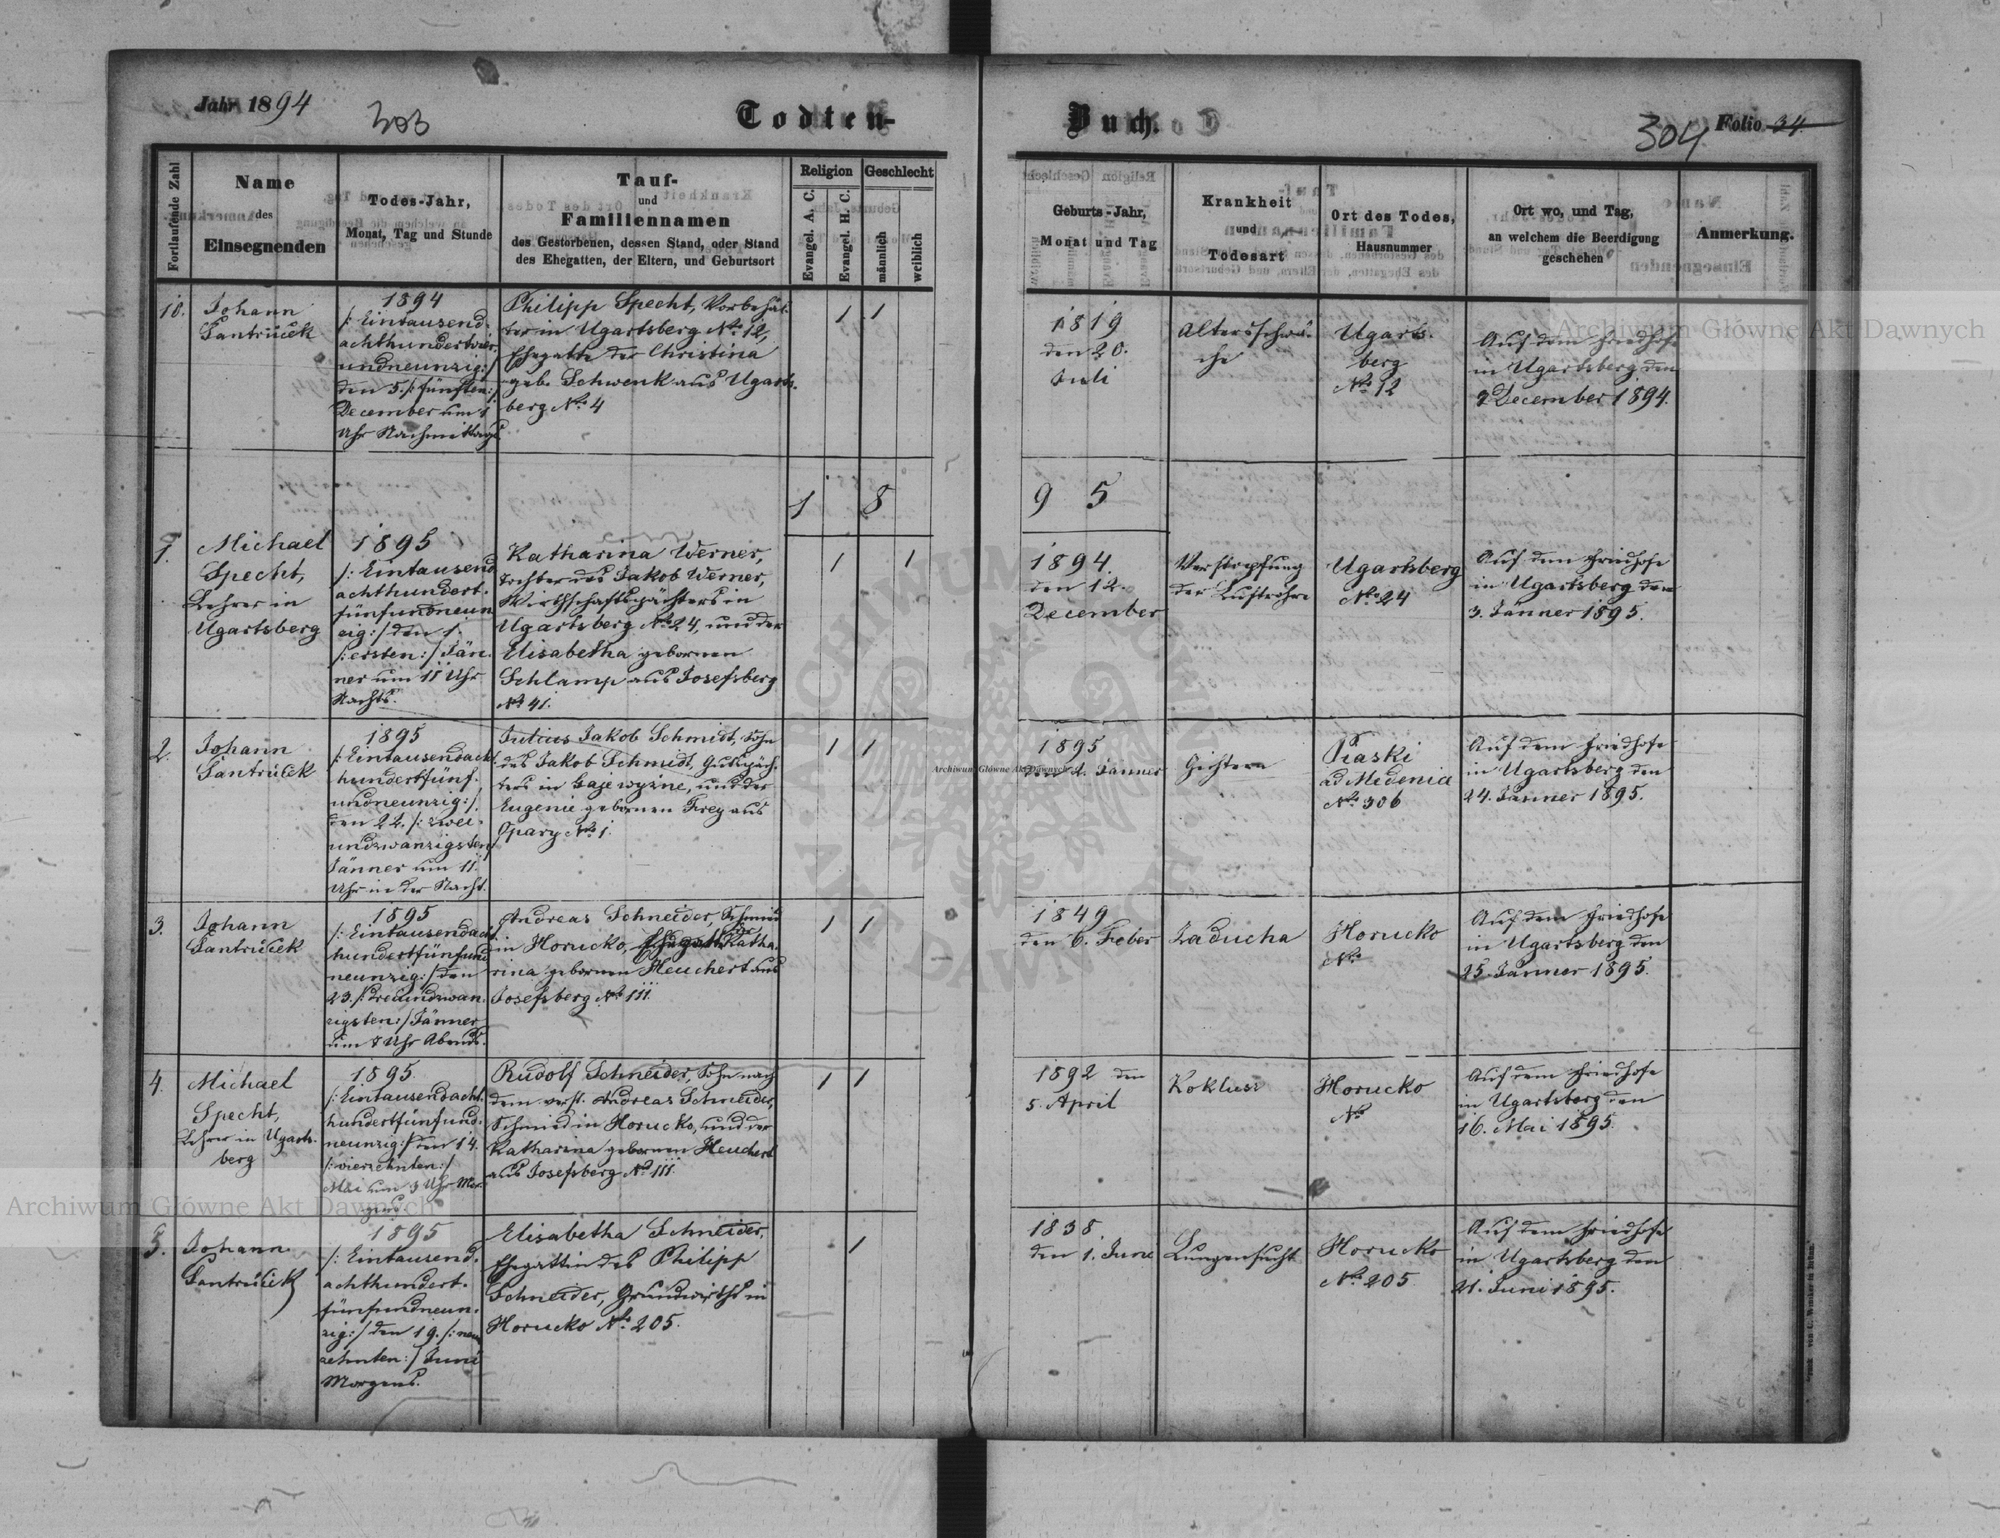 Jahr 1894
303
Todten-
Buch.
304
Folio 34.
Fortlaufende Zahl
Name
des
Einsegnenden
Todes-Jahr,
Monat, Tag und Stunde
Tauf-
und
Familiennamen
des Gestorbenen, dessen Stand, oder Stand
des Ehegatten, der Eltern, und Geburtsort
Religion
Evangel. A. C.
Evangel. H. C.
Geschlecht
männlich
weiblich
Geburts-Jahr,
Monat und Tag
Krankheit
und
Todesart
Ort des Todes,
Hausnummer
Ort wo, und Tag,
an welchem die Beerdigung
geschehen
Anmerkung.
10.
Johann
Santrůček
1894
/: Eintausend-
achthundertvier-
undneunzig :/
den 5. /: fünften :/
December um 1
Uhr Nachmittags
Philipp Specht, Vorbehäl-
ter in Ugartsberg No 12,
Ehegatte der Christina
geb. Schwenk aus Ugarts-
berg No 4
1
1
1819
den 20.
Juli
Altersschwä-
che
Ugarts-
berg
No 12
Auf dem Friedhofe
in Ugartsberg den
7 December 1894.
1 8 9 5
1.
Michael
Specht,
Lehrer in
Ugartsberg
1895
/: Eintausend
achthundert-
fünfundneun
zig :/ den 1.
/: ersten :/ Jän-
ner um 11 Uhr
Nachts.
Katharina Werner,
Tochter des Jakob Werner,
Wirthschaftspächters in
Ugartsberg No 24, und der
Elisabetha gebornen
Schlamp aus Josefsberg
No 41.
1
1
1894.
den 12.
December
Verstopfung
der Luftröhre
Ugartsberg
No 24
Auf dem Friedhofe
in Ugartsberg den
3. Jänner 1895.
2.
Johann
Santrůček
1895
/: Eintausendacht
hundertfünf-
undneunzig :/
den 22. /: zwei-
undzwanzigsten :/
Jänner um 11
Uhr in der Nacht.
Julius Jakob Schmidt, Sohn
des Jakob Schmidt, Gutspäch-
ters in Gaje wyżne, und der
Eugenie gebornen Frey aus
Opary No 1.
1
1
1895
den 4. Jänner
Gichtern
Piaski
ad Medenice
No 306
Auf dem Friedhofe
in Ugartsberg den
24. Jänner 1895.
3.
Johann
Santrůček
1895
/: Eintausendacht
hundertfünfund
neunzig :/ den
23. /: dreiundzwan-
zigsten :/ Jänner
um 8 Uhr Abends.
Andreas Schneider, Schmied
in Horucko, Ehegatte der Katha-
rina gebornen Heuchert aus
Josefsberg No 111.
1
1
1849
den 6. Feber
Zaducha
Horucko
No
Auf dem Friedhofe
in Ugartsberg den
25. Jänner 1895.
4.
Michael
Specht,
Lehrer in Ugarts-
berg
1895.
/: Eintausendacht
hundertfünfund-
neunzig :/ den 14.
/: vierzehnten :/
Mai um 3 Uhr Mor-
gens.
Rudolf Schneider, Sohn nach
dem verst. Andreas Schneider,
Schmied in Horucko, und der
Katharina gebornen Heuchert
aus Josefsberg No 111.
1
1
1892 den
5. April
Koklusz
Horucko
No
Auf dem Friedhofe
in Ugartsberg den
16. Mai 1895.
5.
Johann
Santrůček
1895
/: Eintausend-
achthundert-
fünfundneun-
zig :/ den 19. /: neun
zehnten :/ Juni
Morgens.
Elisabetha Schneider,
Ehegattin des Philipp
Schneider, Grundwirths in
Horucko No 205.
1
1838
den 1. Juni
Lungensucht
Horucko
No 205
Auf dem Friedhofe
in Ugartsberg den
21. Juni 1895.
Archiwum Główne Akt Dawnych
Archiwum Główne Akt Dawnych
Archiwum Główne Akt Dawnych